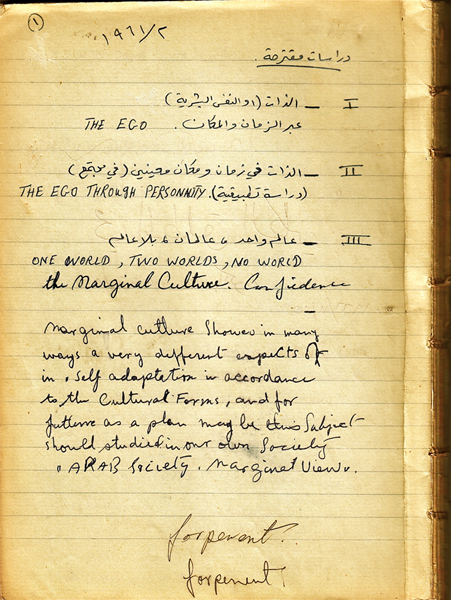 ①
١٩٦١/٢
دراسات مقترحة
I – الذات (او النفس البشرية)
عبر الزمان والمكان. THE EGO
II – الذات في زمان ومكان معينين (في مجتمع)
(دراسة تطبيقية). THE EGO THROUGH PERSONNALITY
III – عالم واحد، عالمان، بلا عالم
ONE WORLD, TWO WORLDS, NO WORLD
the Marginal Culture. Confidence
–
Marginal culture Showes in many
ways a very different expects of
in, self adaptation in accordance
to the Cultural Forms, and for
future as a plan may be this Subject
should studied in our own Society
"ARAB Society. Marginal View".